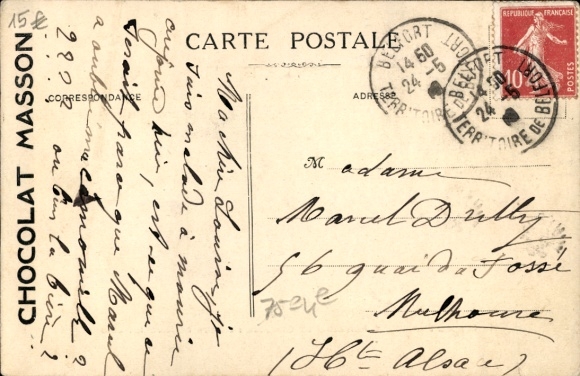 15 €
CARTE POSTALE
CORRESPONDANCE
ADRESSE
CHOCOLAT MASSON
REPUBLIQUE FRANÇAISE
10
BELFORT
14 50
24 -5
TERRITOIRE DE BELFORT
BELFORT
14 50
24 -5
TERRITOIRE DE BELFORT
Ma chère Louise, je
suis malade à mourir
aujourd'hui, est-ce que ce
serait parce que Marcel
a oublié
ou bien la bière ?
Madame
Marcel Drilly
56 quai du Fossé
Mulhouse
(Hte Alsace)